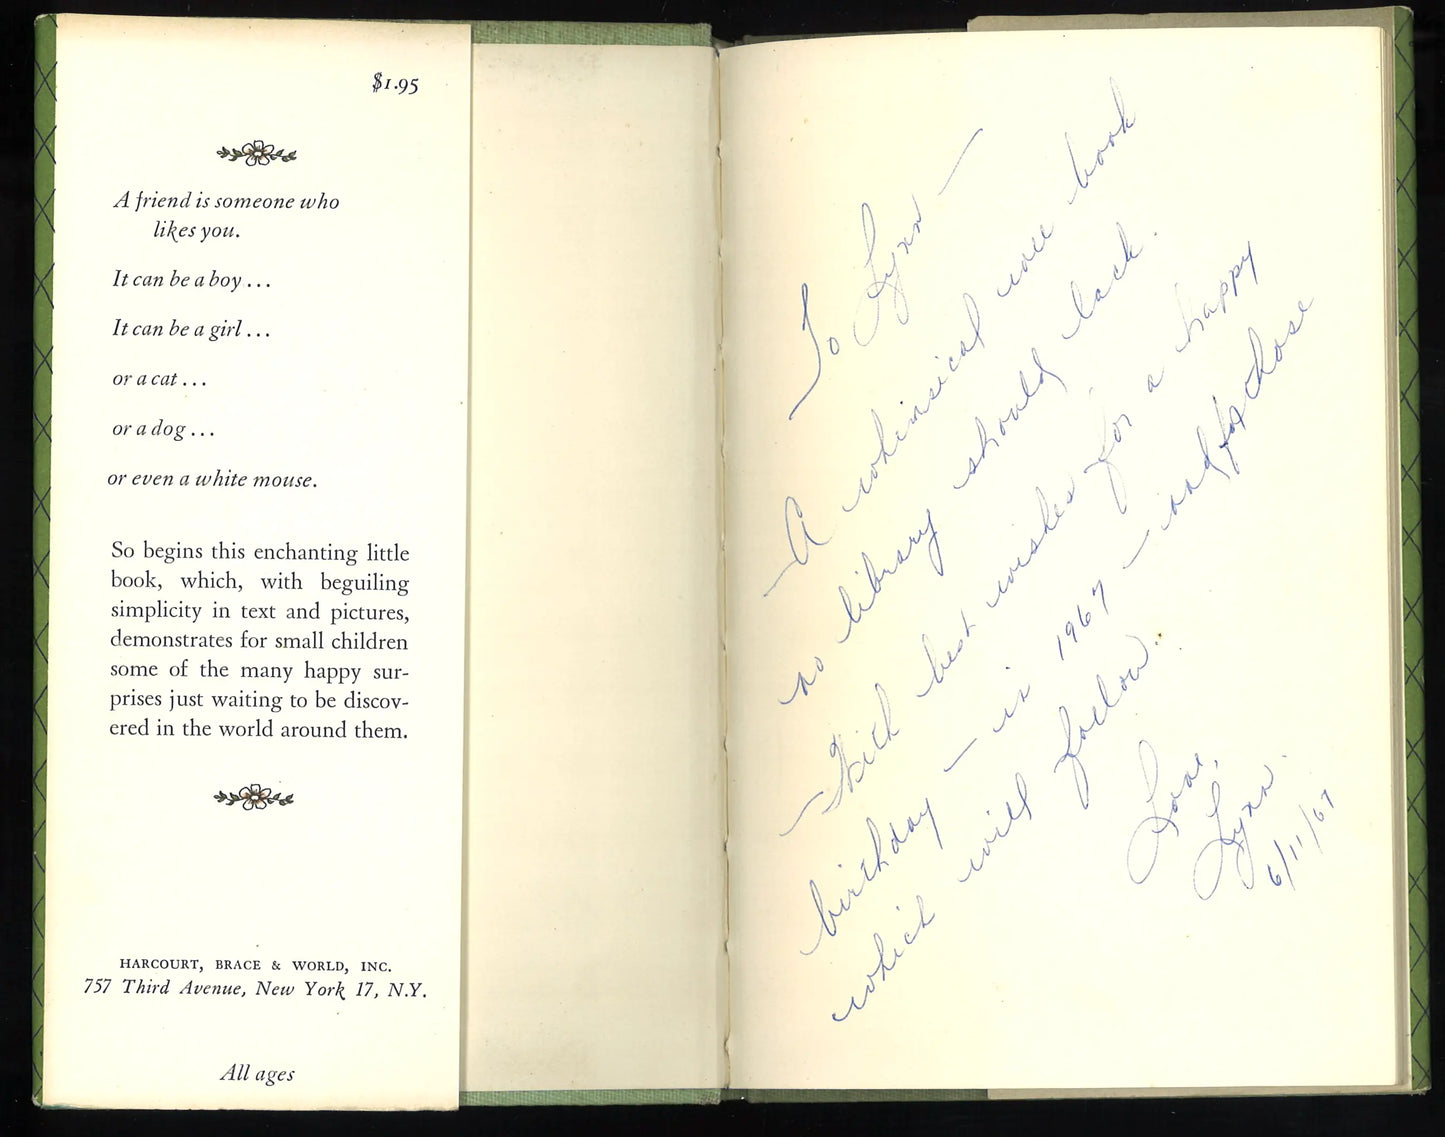 $1.95
A friend is someone who
likes you.
It can be a boy . . .
It can be a girl . . .
or a cat . . .
or a dog . . .
or even a white mouse.
So begins this enchanting little
book, which, with beguiling
simplicity in text and pictures,
demonstrates for small children
some of the many happy sur-
prises just waiting to be discov-
ered in the world around them.
HARCOURT, BRACE & WORLD, INC.
757 Third Avenue, New York 17, N.Y.
All ages
To Lynn —
A whimsical wee book
no library should lack.
With best wishes for a happy
birthday — in 1967 — and for those
which will follow.
Love,
Lynn.
6/11/67